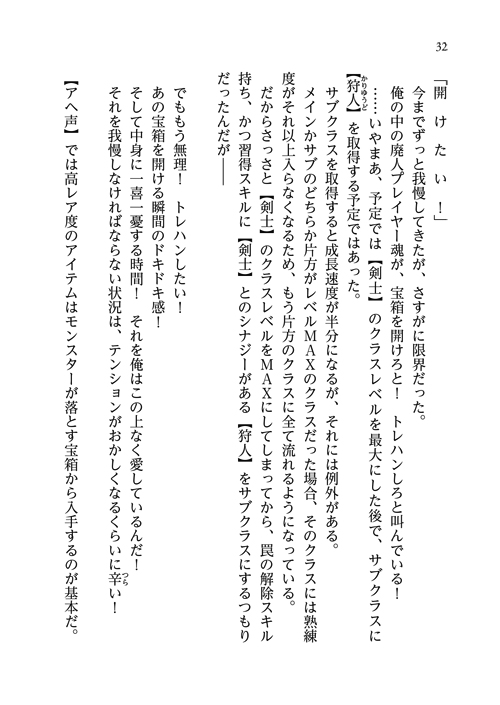 32
「開けたい！」
今までずっと我慢してきたが、さすがに限界だった。
俺の中の廃人プレイヤー魂が、宝箱を開けろと！　トレハンしろと叫んでいる！
……いやまあ、予定では【剣士】のクラスレベルを最大にした後で、サブクラスに
【狩人】を取得する予定ではあった。
かりゅうど
サブクラスを取得すると成長速度が半分になるが、それには例外がある。
メインかサブのどちらか片方がレベルＭＡＸのクラスだった場合、そのクラスには熟練
度がそれ以上入らなくなるため、もう片方のクラスに全て流れるようになっている。
だからさっさと【剣士】のクラスレベルをＭＡＸにしてしまってから、罠の解除スキル
持ち、かつ習得スキルに【剣士】とのシナジーがある【狩人】をサブクラスにするつもり
だったんだが――
でももう無理！　トレハンしたい！
あの宝箱を開ける瞬間のドキドキ感！
そして中身に一喜一憂する時間！　それを俺はこの上なく愛しているんだ！
それを我慢しなければならない状況は、テンションがおかしくなるくらいに辛い！
つら
【アヘ声】では高レア度のアイテムはモンスターが落とす宝箱から入手するのが基本だ。